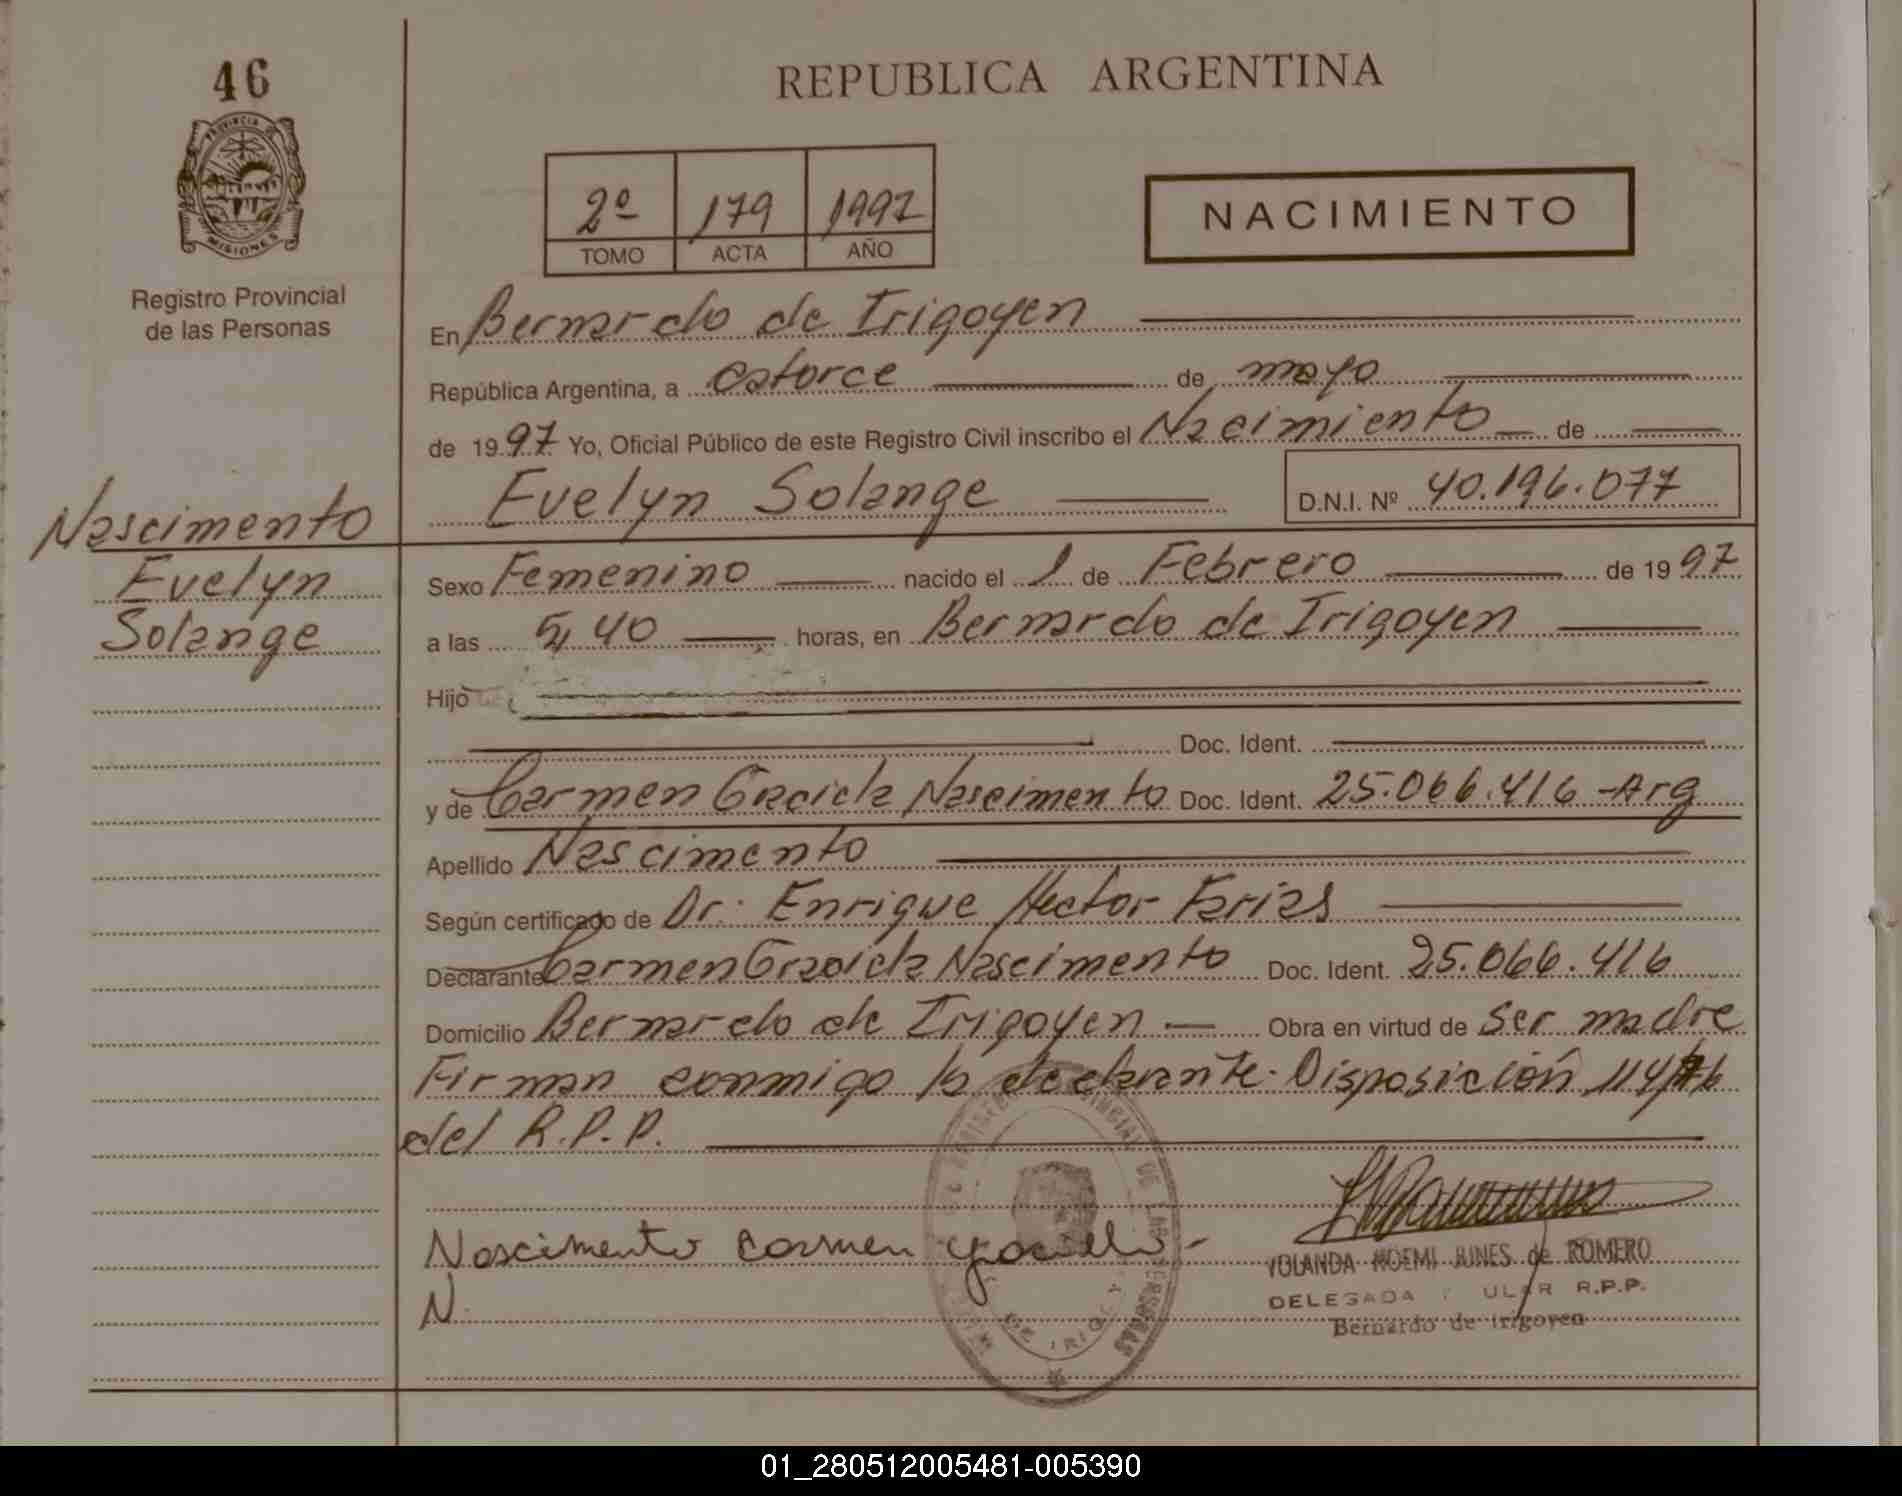 46
PROVINCIA DE
MISIONES
Registro Provincial
de las Personas
REPUBLICA ARGENTINA
2º 179 1997
TOMO ACTA AÑO
NACIMIENTO
En Bernardo de Irigoyen
República Argentina, a catorce de mayo
de 1997 Yo, Oficial Público de este Registro Civil inscribo el Nacimiento de
Evelyn Solange D.N.I. Nº 40.196.077
Nascimento
Evelyn
Solange
Sexo Femenino nacido el 1 de Febrero de 1997
a las 5,40 horas, en Bernardo de Irigoyen
Hijo
Doc. Ident.
y de Carmen Graciela Nascimento Doc. Ident. 25.066.416 -Arg
Apellido Nascimento
Según certificado de Dr. Enrique Hector Farias
Declarante Carmen Graciela Nascimento Doc. Ident. 25.066.416
Domicilio Bernardo de Irigoyen Obra en virtud de ser madre
Firman conmigo la declarante. Disposición 114/76
del R.P.P.
Nascimento Carmen Graciela
N.
YOLANDA NOEMI JUNES de ROMERO
DELEGADA R.P.P.
Bernardo de Irigoyen
01_280512005481-005390